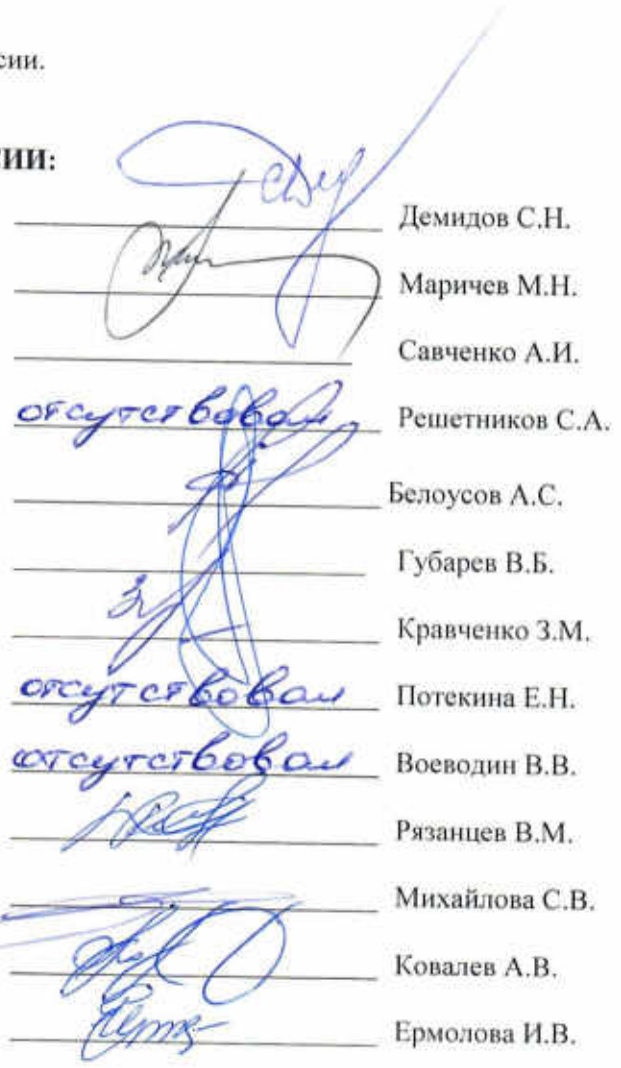 сии.
ИИ:
Демидов С.Н.
Маричев М.Н.
Савченко А.И.
отсутствовал Решетников С.А.
Белоусов А.С.
Губарев В.Б.
Кравченко З.М.
отсутствовал Потекина Е.Н.
отсутствовал Воеводин В.В.
Рязанцев В.М.
Михайлова С.В.
Ковалев А.В.
Ермолова И.В.